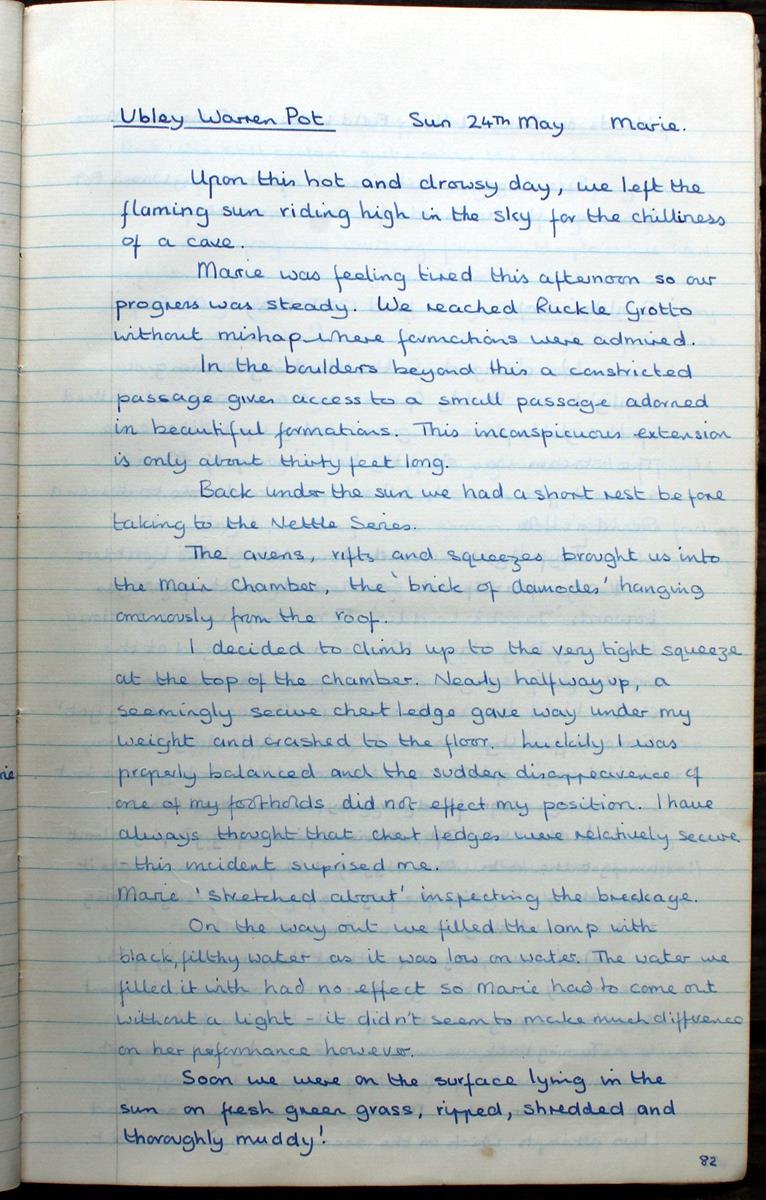 Ubley Warren Pot Sun 24TH May Marie.
Upon this hot and drowsy day, we left the
flaming sun riding high in the sky for the chilliness
of a cave.
Marie was feeling tired this afternoon so our
progress was steady. We reached Ruckle Grotto
without mishap where formations were admired.
In the boulders beyond this a constricted
passage gives access to a small passage adorned
in beautiful formations. This inconspicuous extension
is only about thirty feet long.
Back under the sun we had a short rest before
taking to the Nettle Series.
The avens, rifts and squeezes brought us into
the Main Chamber, the 'brick of damocles' hanging
ominously from the roof.
I decided to climb up to the very tight squeeze
at the top of the chamber. Nearly halfway up, a
seemingly secure chert ledge gave way under my
weight and crashed to the floor. Luckily I was
nie
properly balanced and the sudden disappearence of
one of my footholds did not effect my position. I have
always thought that chert ledges were relatively secure
- this incident suprised me.
Marie 'stretched about' inspecting the breakage.
On the way out we filled the lamp with
black, filthy water as it was low on water. The water we
filled it with had no effect so Marie had to come out
without a light - it didn't seem to make much difference
on her performance however.
Soon we were on the surface lying in the
sun on fresh green grass, ripped, shredded and
thoroughly muddy!
82